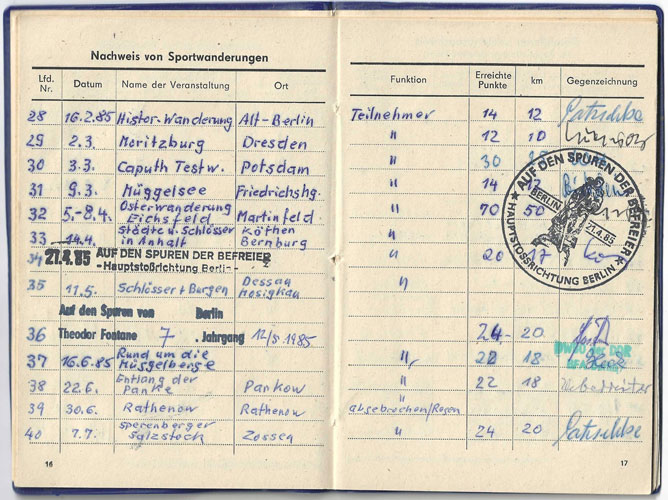 Nachweis von Sportwanderungen
Lfd. Nr. Datum Name der Veranstaltung Ort
28 16.2.85 Histor. Wanderung Alt-Berlin
29 2.3. Moritzburg Dresden
30 3.3. Caputh Testw. Potsdam
31 9.3. Müggelsee Friedrichshg.
32 5.-8.4. Osterwanderung Eichsfeld Martinfeld
33 14.4. Städte u. Schlösser in Anhalt Köthen Bernburg
34 21.4.85 AUF DEN SPUREN DER BEFREIER
-Hauptstoßrichtung Berlin-
35 11.5. Schlösser + Burgen Dessau Mosigkau
Auf den Spuren von Berlin
36 Theodor Fontane 7. Jahrgang 12/5.1985
37 16.6.85 Rund um die Müggelberge
38 22.6. Entlang der Panke Pankow
39 30.6. Rathenow Rathenow
40 7.7. Sperenberger Salzstock Zossen
16
Funktion Erreichte Punkte km Gegenzeichnung
Teilnehmer 14 12 Patzschke
" 12 10
" 30
" 14 12
" 70 50
" 20 17
"
24 20
" 22 18
" 22 18
"
abgebrochen/Regen
" 24 20 Patzschke
★ AUF DEN SPUREN DER BEFREIER ★
HAUPTSTOSSRICHTUNG BERLIN
BERLIN
21.4.85
17